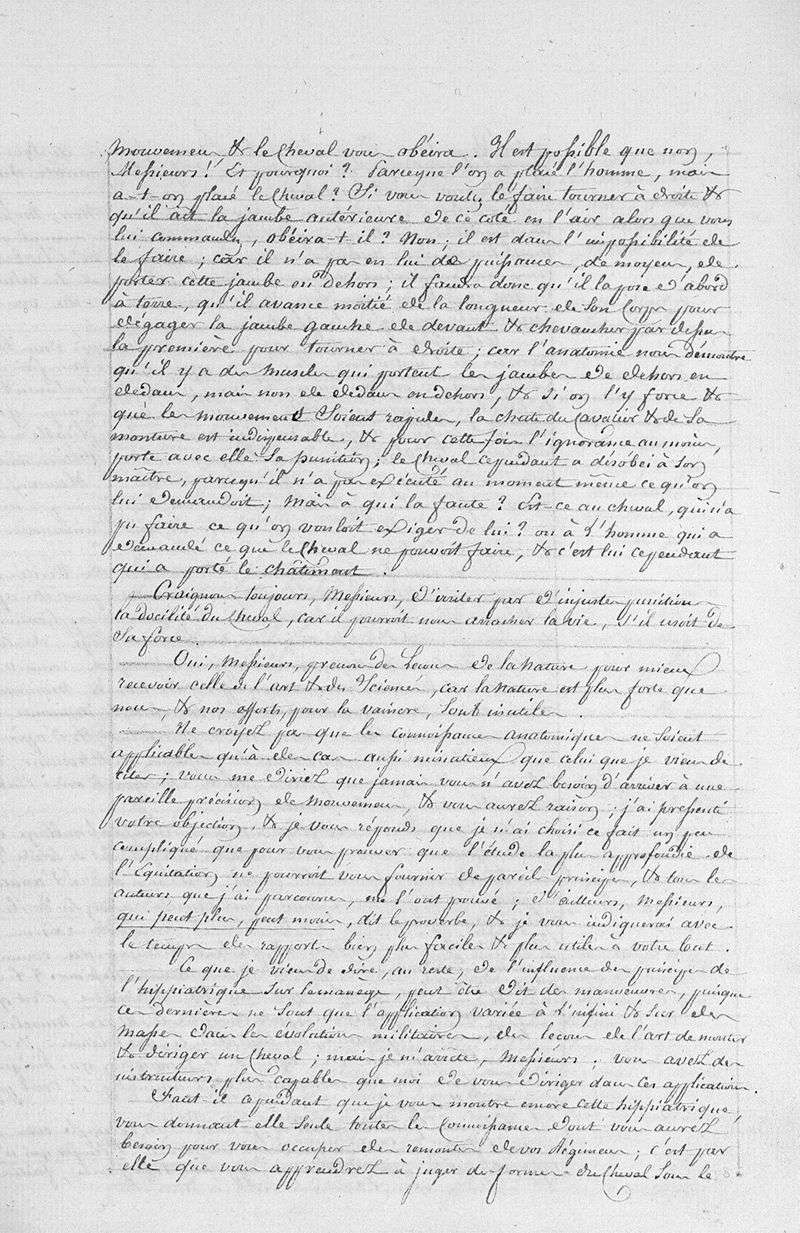 mouvemens, & le cheval vous obéira. Il est possible que non,
Messieurs! Et pourquoi? Parceque l'on a placé l'homme, mais
a-t-on placé le cheval? Si vous voulez le faire tourner à droite &
qu'il ait la jambe antérieure de ce coté en l'air alors que vous
lui commandez, obéira-t-il? Non; il est dans l'impossibilité de
le faire; car il n'a pas en lui de puissances, de moyens, de
porter cette jambe en dehors; il faudra donc qu'il la pose d'abord
à terre, qu'il avance moitié de la longueur de son corps pour
dégager la jambe gauche de devant & chevaucher par dessus
la première pour tourner à droite; car l'anatomie nous démontre
qu'il y a des muscles qui portent les jambes de dehors en
dedans, mais non de dedans en dehors, & si on l'y force &
que les mouvements soient rapides, la chute du cavalier & de sa
monture est indispensable, & pour cette fois l'ignorance au moins,
porte avec elle sa punition; le cheval cependant a désobéi à son
maître, parcequ'il n'a pas exécuté au moment même ce qu'on
lui demandoit; mais à qui la faute? Est-ce au cheval, qui n'a
pu faire ce qu'on vouloit exiger de lui? ou à l'homme qui a
demandé ce que le cheval ne pouvoit faire, & c'est lui cependant
qui a porté le châtiment.
Craignons toujours, Messieurs, d'irriter par d'injustes punitions
la docilité du cheval, car il pourroit nous arracher la vie, s'il usoit de
sa force.
Oui, Messieurs, prenons des leçons de la nature pour mieux
recevoir celles de l'art & des sciences, car la nature est plus forte que
nous, & nos efforts, pour la vaincre, sont inutiles.
Ne croyez pas que les connoissances anatomiques ne soient
applicables qu'à des cas aussi minutieux que celui que je viens de
citer; vous me direz que jamais vous n'avez besoin d'arriver à une
pareille précision de mouvemens, & vous aurez raison; j'ai pressenti
votre objection, & je vous réponds que je n'ai choisi ce fait un peu
compliqué que pour vous prouver que l'étude la plus approfondie de
l'Equitation ne pourroit vous fournir de pareils principes, & tous les
auteurs que j'ai parcourus, me l'ont prouvé; d'ailleurs, Messieurs,
qui peut plus, peut moins, dit le proverbe, & je vous indiquerai avec
le temps des rapports bien plus faciles & plus utiles à votre but.
Ce que je viens de dire, au reste, de l'influence des principes de
l'hippiatrique sur le manège, peut être dit des manoeuvres, puisque
ces dernières ne sont que l'application variée à l'infini & sur des
masses dans les évolutions militaires, des leçons de l'art de monter
& diriger un cheval; mais je m'arrête, Messieurs; vous avez des
instructeurs plus capables que moi de vous diriger dans ces applications.
Faut-il cependant que je vous montre encore cette hippiatrique,
vous donnant elle seule toutes les connoissances dont vous aurez
besoin pour vous occuper des remontes de vos Régimens; c'est par
elle que vous apprendrez à juger des formes du cheval sous le